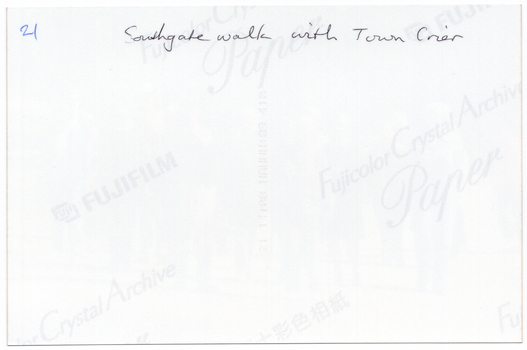 21 Southgate walk with Town Crier
FUJIFILM
Fujicolor Crystal Archive
Paper
Fujicolor Crystal Archive
Paper
FUJIFILM
Crystal Archive
彩色相紙
Fu